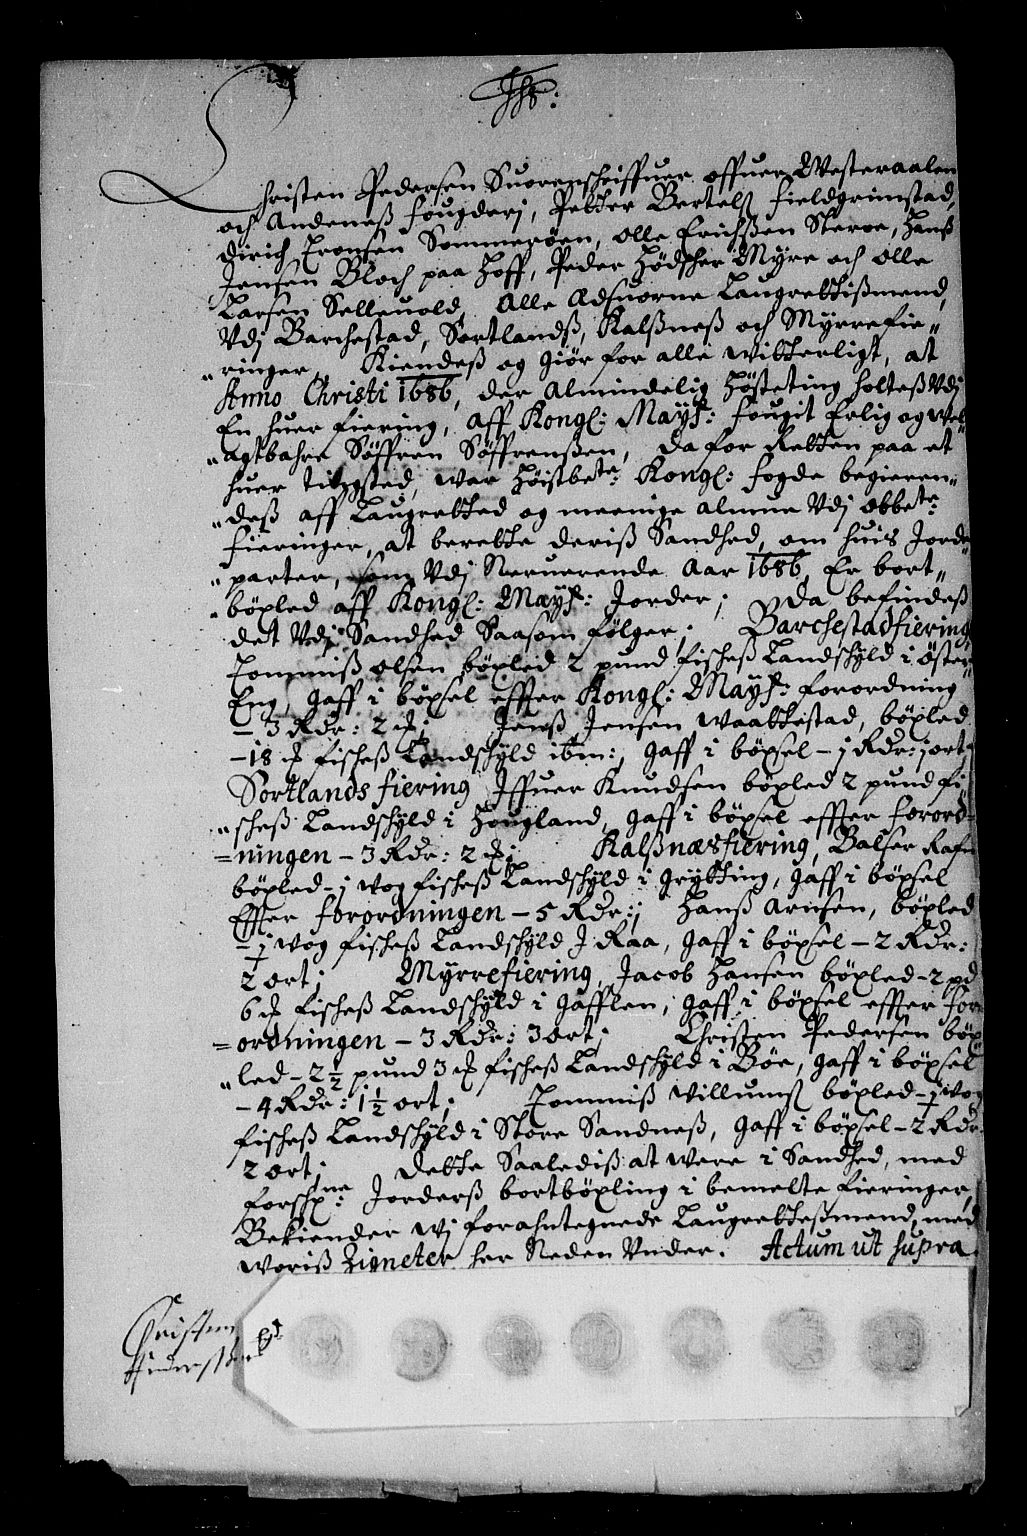 Jhs:
Christen Pedersen Suorenschriffuer offuer Westeraalen
och Andeneß fougderj, Petter Bertelß fieldgrimstad,
dirich Jronsen Sommerøen, olle Erichßen Steroe, Hanß
Jensen Bloch paa Hoff, Peder Hødscher Myre och olle
Larsen Selleuold, Alle Edsuorne Laugrettißmend,
Vdj Barchestad, Sortlandß, Kalßneß och Myrrefie„
„ringer, Kiendeß og giør for alle witterligt, at
Anno Christi 1686, der Almindelig Høsteting holteß Vdj
En huer fiering, aff Kongl: Mayst: fougit Erlig og Wel„
„agtbahre Søffren Søffrenßen, da for Retten paa et
huer tingsted, war Høistbete: Kongl: fogde begieren„
„deß aff Laugretted og meenige almue Vdj obbete:
fieringer, at berette deriß Sandhed, om huis Jorde„
„parter, som Vdj Neruerende Aar 1686, Er bort„
„bøxled aff Kongl: Mayst: Jorder; da befindeß
det Vdj Sandhed Saasom følger; Barchestadfiering
Tommiß olsen bøxled 2 pund fischeß Landschyld i Øster„
Eng, gaff i bøxsel effter Kongl: Mayst: forordning
– 3 Rdr: 2 ß; Jenß Jensen Waattestad, bøxled
– 18 ß fischeß Landschyld ibm:, gaff i bøxsel – j Rdr: j ort
Sortlands fiering Jffuer Knudsen bøxled 2 pund fi„
„scheß Landschyld i Hougland, gaff i bøxsel effter forord=
=ningen – 3 Rdr: 2 ß; Kalßnæsfiering, Balser Rafn
bøxled – j vog fischeß Landschyld i grytting, gaff i bøxsel
Effter forordningen – 5 Rdr:; Hanß Arnsen, bøxled
– ½ vog fischeß Landschyld J Raa, gaff i bøxsel – 2 Rdr:
2 ort; Myrrefiering, Jacob Hansen bøxled – 2 pd
6 ß fischeß Landschyld i gafflen, gaff i bøxsel effter for
=ordningen – 3 Rdr: 3 ort; Christen Pedersen bøx
„led – 2 ½ pund 3 ß fischeß Landschyld i Bøe, gaff i bøxsel
– 4 Rdr: 1 ½ ort; Tommiß Villumß bøxled – ½ vog
fischeß Landschyld i Store Sandneß, gaff i bøxsel – 2 Rdr:
2 ort; dette Saalediß at were i Sandhed, med
forschne: Jorderß bortbøxling i bemelte fieringer,
Bekiender wj forahntegnede Laugretteßmend, med
woriß Zigneter her Neden Vnder. Actum ut supra.
Christen
Pedersen